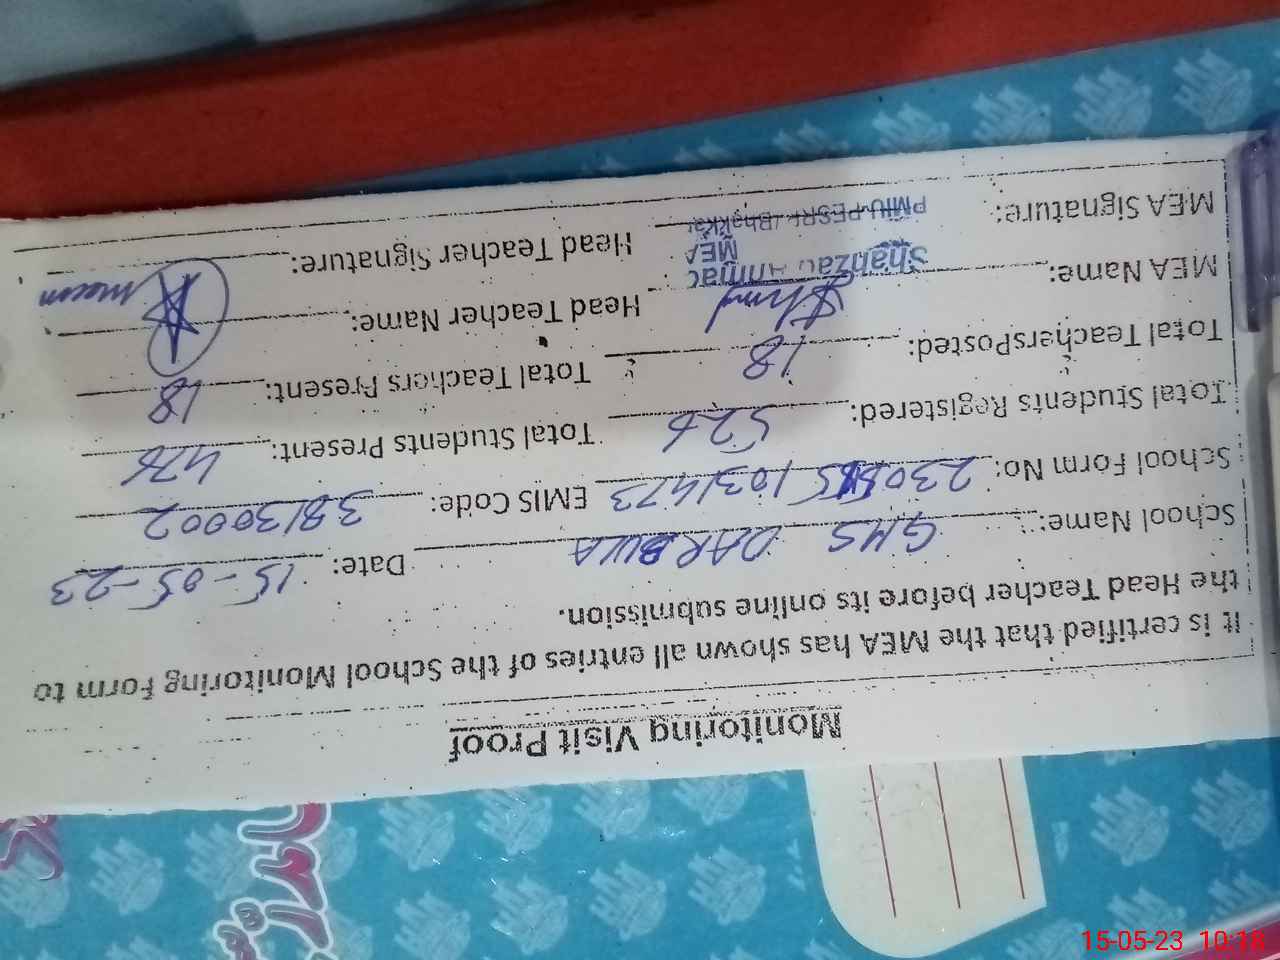 Monitoring Visit Proof
It is certified that the MEA has shown all entries of the School Monitoring Form to
the Head Teacher before its online submission.
School Name: GMS DARBULA Date: 15-05-23
School Form No: EMIS Code: 38130002
Total Students Registered: 526 Total Students Present: 476
Total TeachersPosted: 18 Total Teachers Present: 18
MEA Name: Head Teacher Name:
MEA Signature: Head Teacher Signature:
MEA
PMIU-PESRP/Bhakkar
15-05-23 10:18